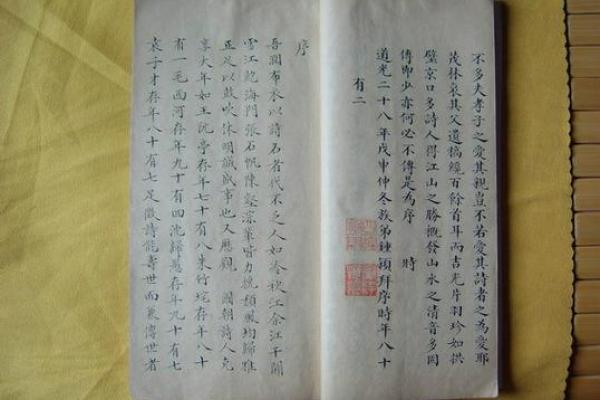 不多夫孝子之愛其親豈不若愛其詩者之為愛耶
茂林哀其父遺稿纔百餘首耳而吉光片羽珍如拱
璧京口多詩人得江山之勝概發山水之清音多固
傳即少亦何必不傳是為序 時
道光二十八年戊申仲冬族弟鍾穎拜序時年八十
有二
序
吾潤布衣以詩名者代不乏人如冷秋江余江干關
雪江鮑海門張石帆陳輩皆力挽頹風均歸雅
正足以鼓吹休明誠盛事也又歷觀 國朝詩人克
享大年如王亭存年七十有八朱竹垞存年八十
有一毛西河存年九十有四沈歸愚存年九十有七
袁子才存年八十有七足徵詩能壽世而兼傳世者